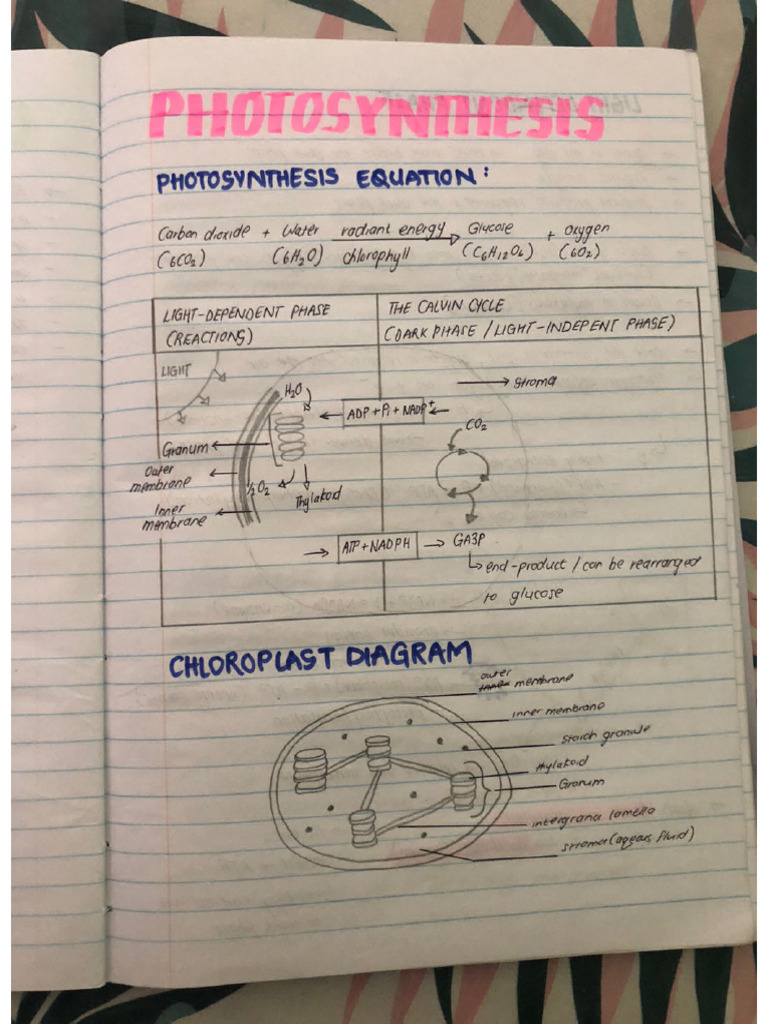 PHOTOSYNTHESIS
PHOTOSYNTHESIS EQUATION:
Carbon dioxide + Water radiant energy Glucose + Oxygen
(6CO2) (6H2O) chlorophyll (C6H12O6) (6O2)
LIGHT-DEPENDENT PHASE
(REACTIONS)
THE CALVIN CYCLE
(DARK PHASE / LIGHT-INDEPENT PHASE)
LIGHT
H2O
Granum
Outer
membrane
Inner
membrane
½O2
Thylakoid
ADP + Pi + NADP+
ATP + NADPH
stroma
CO2
GA3P
end-product / can be rearranged
to glucose
CHLOROPLAST DIAGRAM
outer
membrane
inner membrane
starch granule
thylakoid
Granum
intergrana lamella
stroma (aqeous fluid)